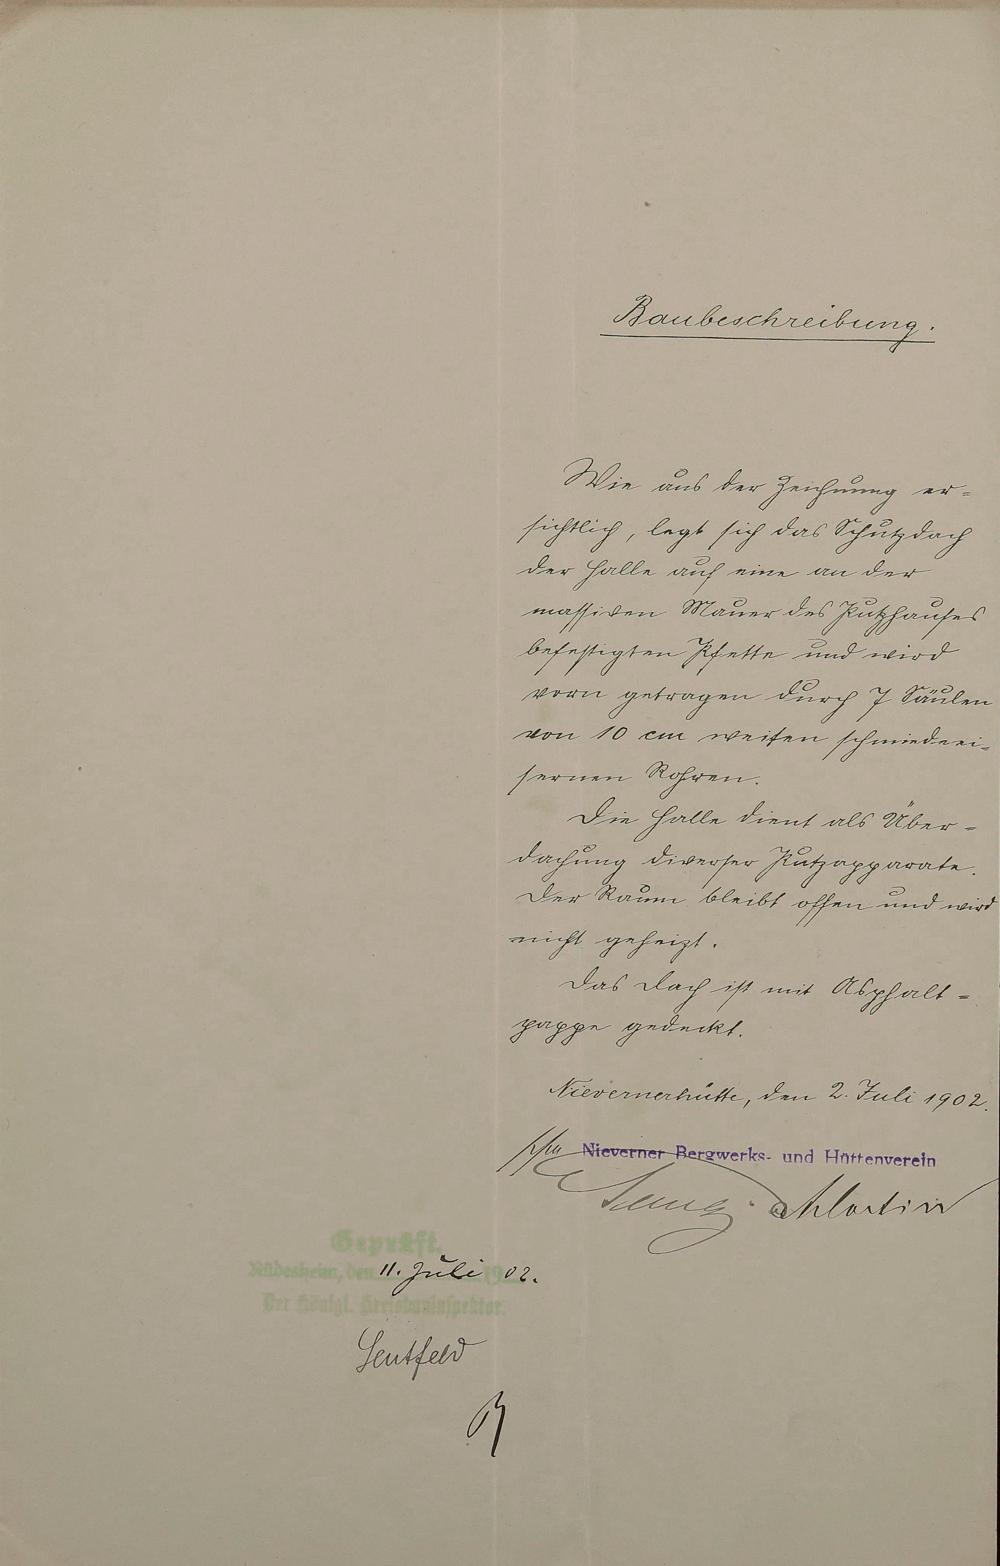 Baubeschreibung.
Wie aus der Zeichnung er=
sichtlich, legt sich das Schutzdach
der Halle auf eine an der
massiven Mauer des Putzhauses
befestigten Pfette und wird
vorn getragen durch 7 Säulen
von 10 cm weiten schmiedeei=
sernen Rohren.
Die Halle dient als Über=
dachung diverser Putzapparate.
Der Raum bleibt offen und wird
nicht geheizt.
Das Dach ist mit Asphalt=
pappe gedeckt.
Nievernerhütte, den 2. Juli 1902.
ppa Nieverner Bergwerks- und Hüttenverein
Martin
Geprüft.
Rüdesheim, den 11. Juli 1902.
Der Königl. Kreisbauinspektor.